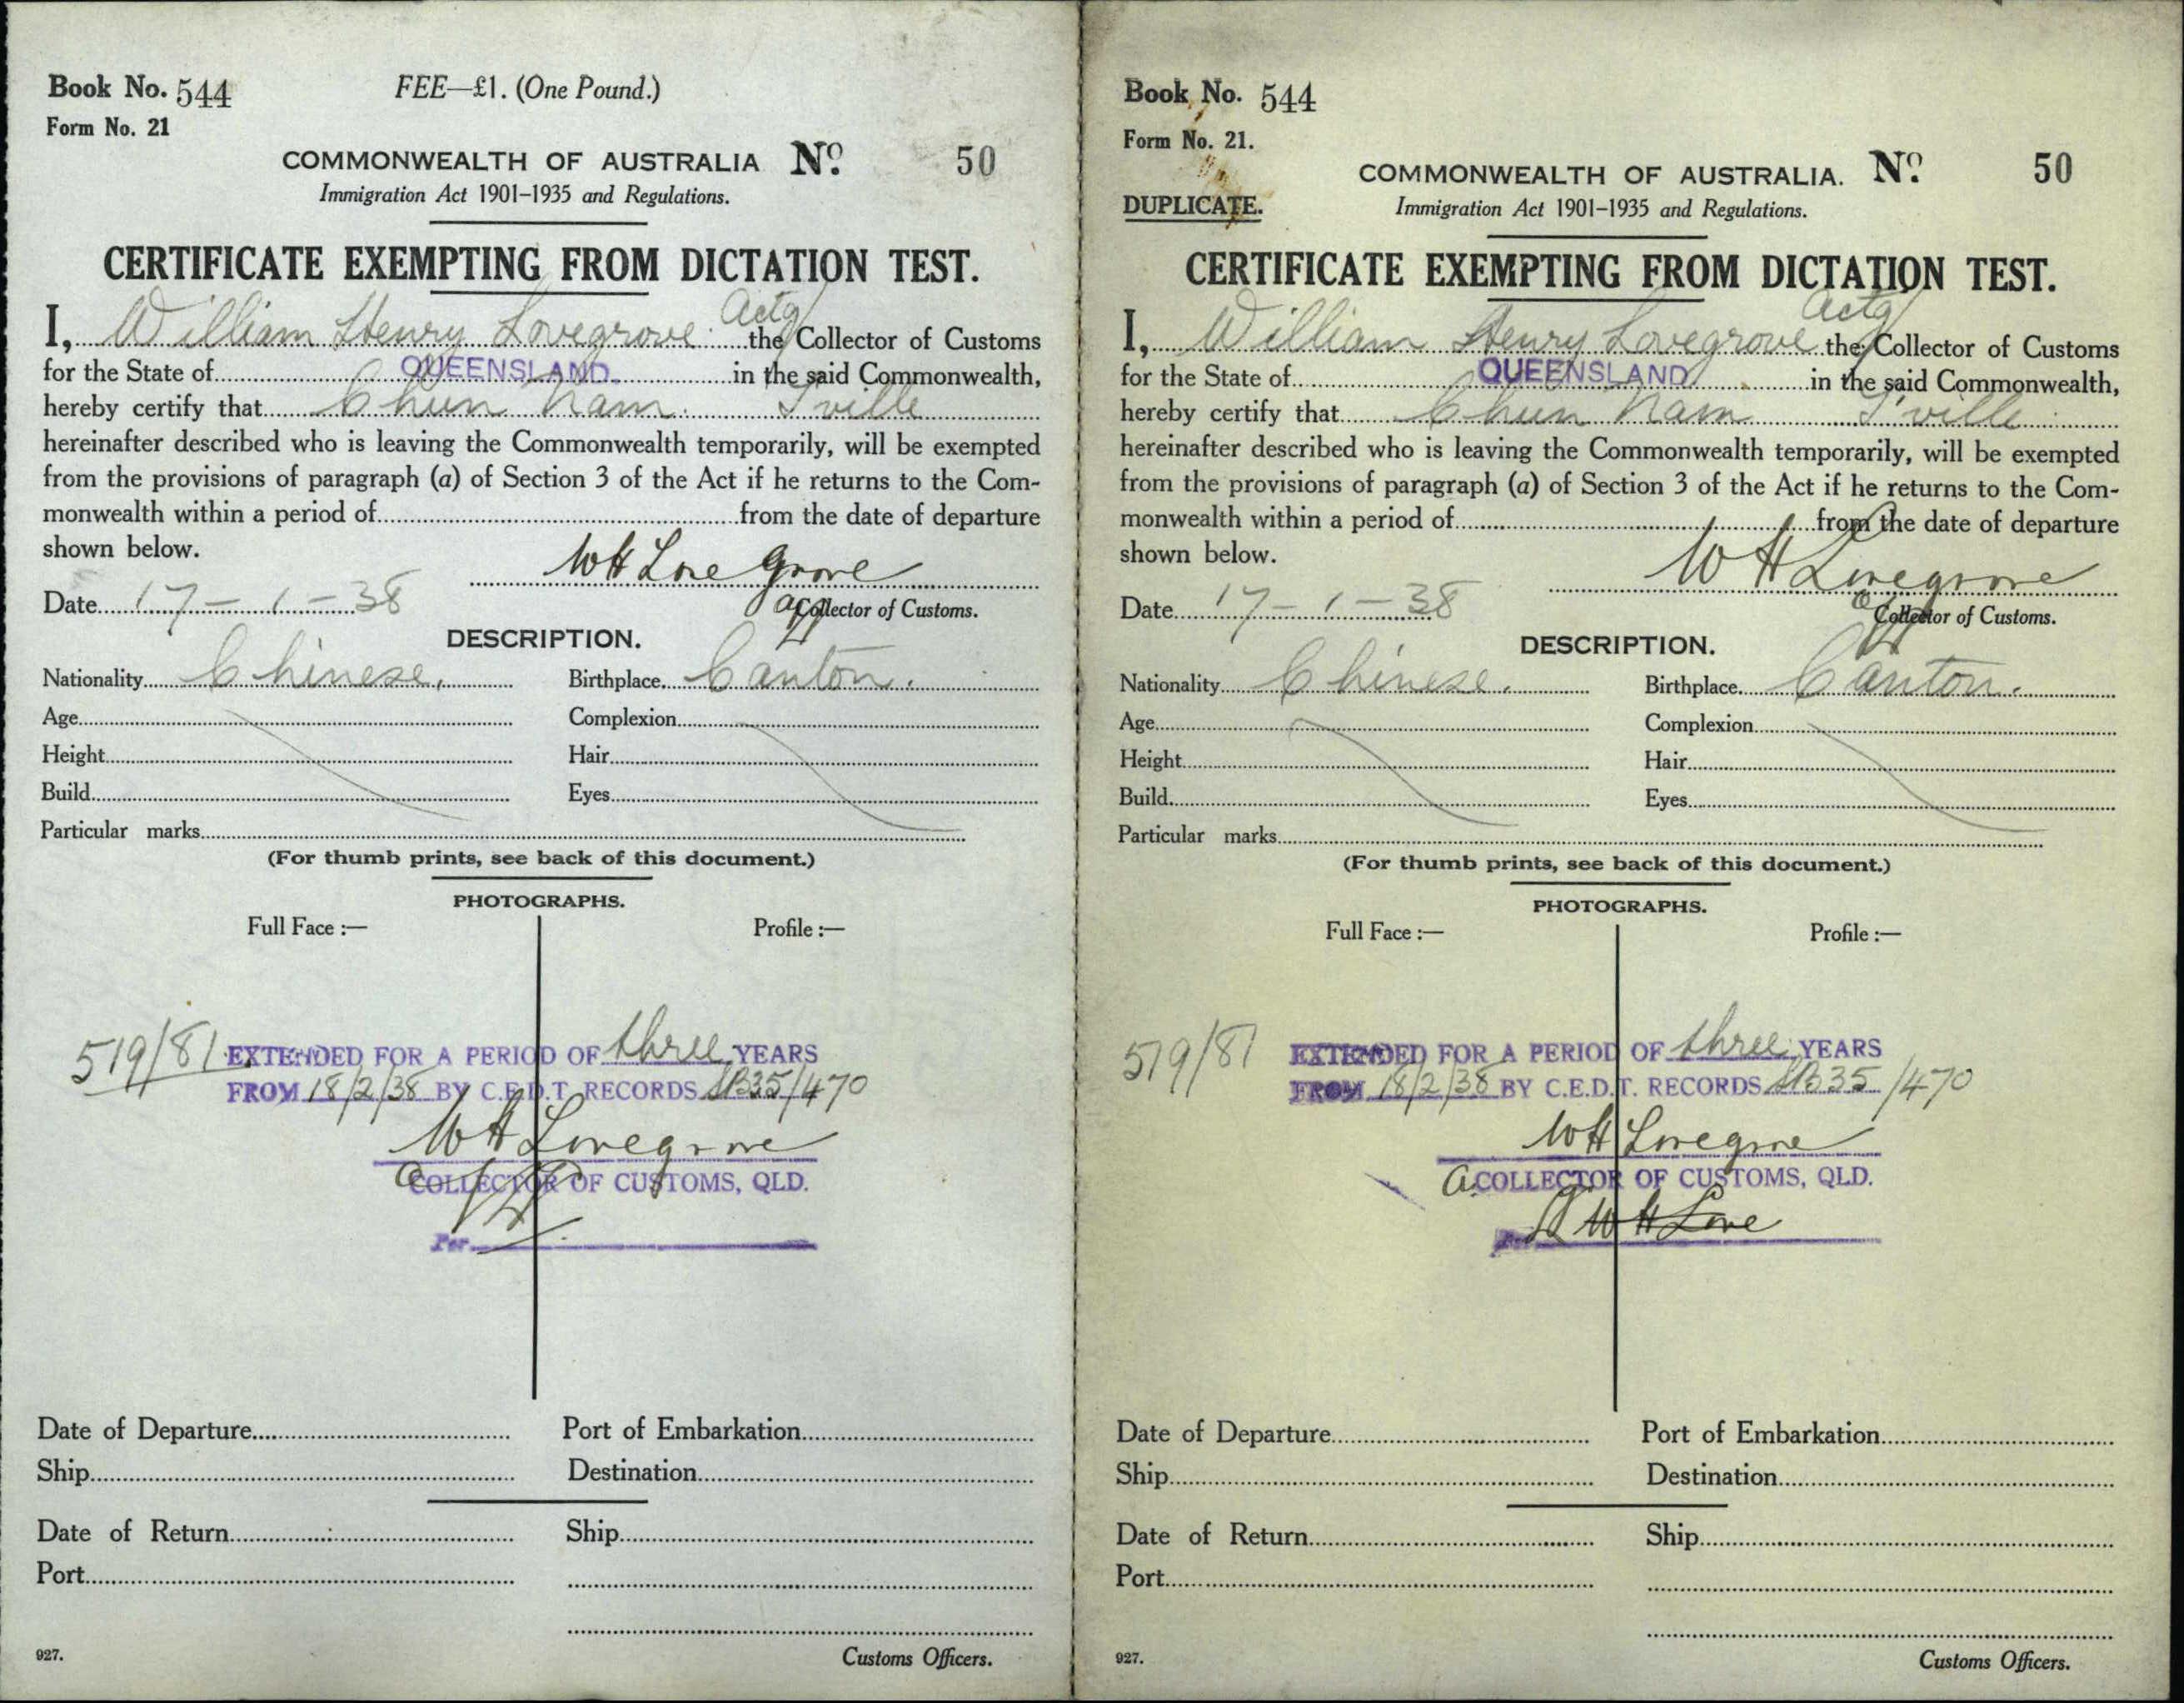 Book No. 544
FEE—£1. (One Pound.)
Form No. 21
COMMONWEALTH OF AUSTRALIA No. 50
Immigration Act 1901–1935 and Regulations.
CERTIFICATE EXEMPTING FROM DICTATION TEST.
Actg
I, William Henry Lovegrove the Collector of Customs
for the State of QUEENSLAND. in the said Commonwealth,
hereby certify that Chun Nam. T'ville
hereinafter described who is leaving the Commonwealth temporarily, will be exempted
from the provisions of paragraph (a) of Section 3 of the Act if he returns to the Com-
monwealth within a period of from the date of departure
shown below.
WH Lovegrove
Date 17–1–38
Collector of Customs.
DESCRIPTION.
Nationality Chinese. Birthplace Canton.
Age Complexion
Height Hair
Build Eyes
Particular marks
(For thumb prints, see back of this document.)
PHOTOGRAPHS.
Full Face :— Profile :—
519/81 EXTENDED FOR A PERIOD OF three YEARS
FROM 18/2/38 BY C.E.D.T. RECORDS B35/470
WH Lovegrove
COLLECTOR OF CUSTOMS, QLD.
Per
Date of Departure Port of Embarkation
Ship Destination
Date of Return Ship
Port
927.
Customs Officers.
Book No. 544
Form No. 21.
COMMONWEALTH OF AUSTRALIA. No. 50
DUPLICATE.
Immigration Act 1901–1935 and Regulations.
CERTIFICATE EXEMPTING FROM DICTATION TEST.
Actg
I, William Henry Lovegrove the Collector of Customs
for the State of QUEENSLAND in the said Commonwealth,
hereby certify that Chun Nam T'ville
hereinafter described who is leaving the Commonwealth temporarily, will be exempted
from the provisions of paragraph (a) of Section 3 of the Act if he returns to the Com-
monwealth within a period of from the date of departure
shown below.
WH Lovegrove
Date 17–1–38
Collector of Customs.
DESCRIPTION.
Nationality Chinese. Birthplace Canton.
Age Complexion
Height Hair
Build Eyes
Particular marks
(For thumb prints, see back of this document.)
PHOTOGRAPHS.
Full Face :— Profile :—
519/81 EXTENDED FOR A PERIOD OF three YEARS
FROM 18/2/38 BY C.E.D.T. RECORDS B35/470
WH Lovegrove
a. COLLECTOR OF CUSTOMS, QLD.
WH Love
Date of Departure Port of Embarkation
Ship Destination
Date of Return Ship
Port
927.
Customs Officers.